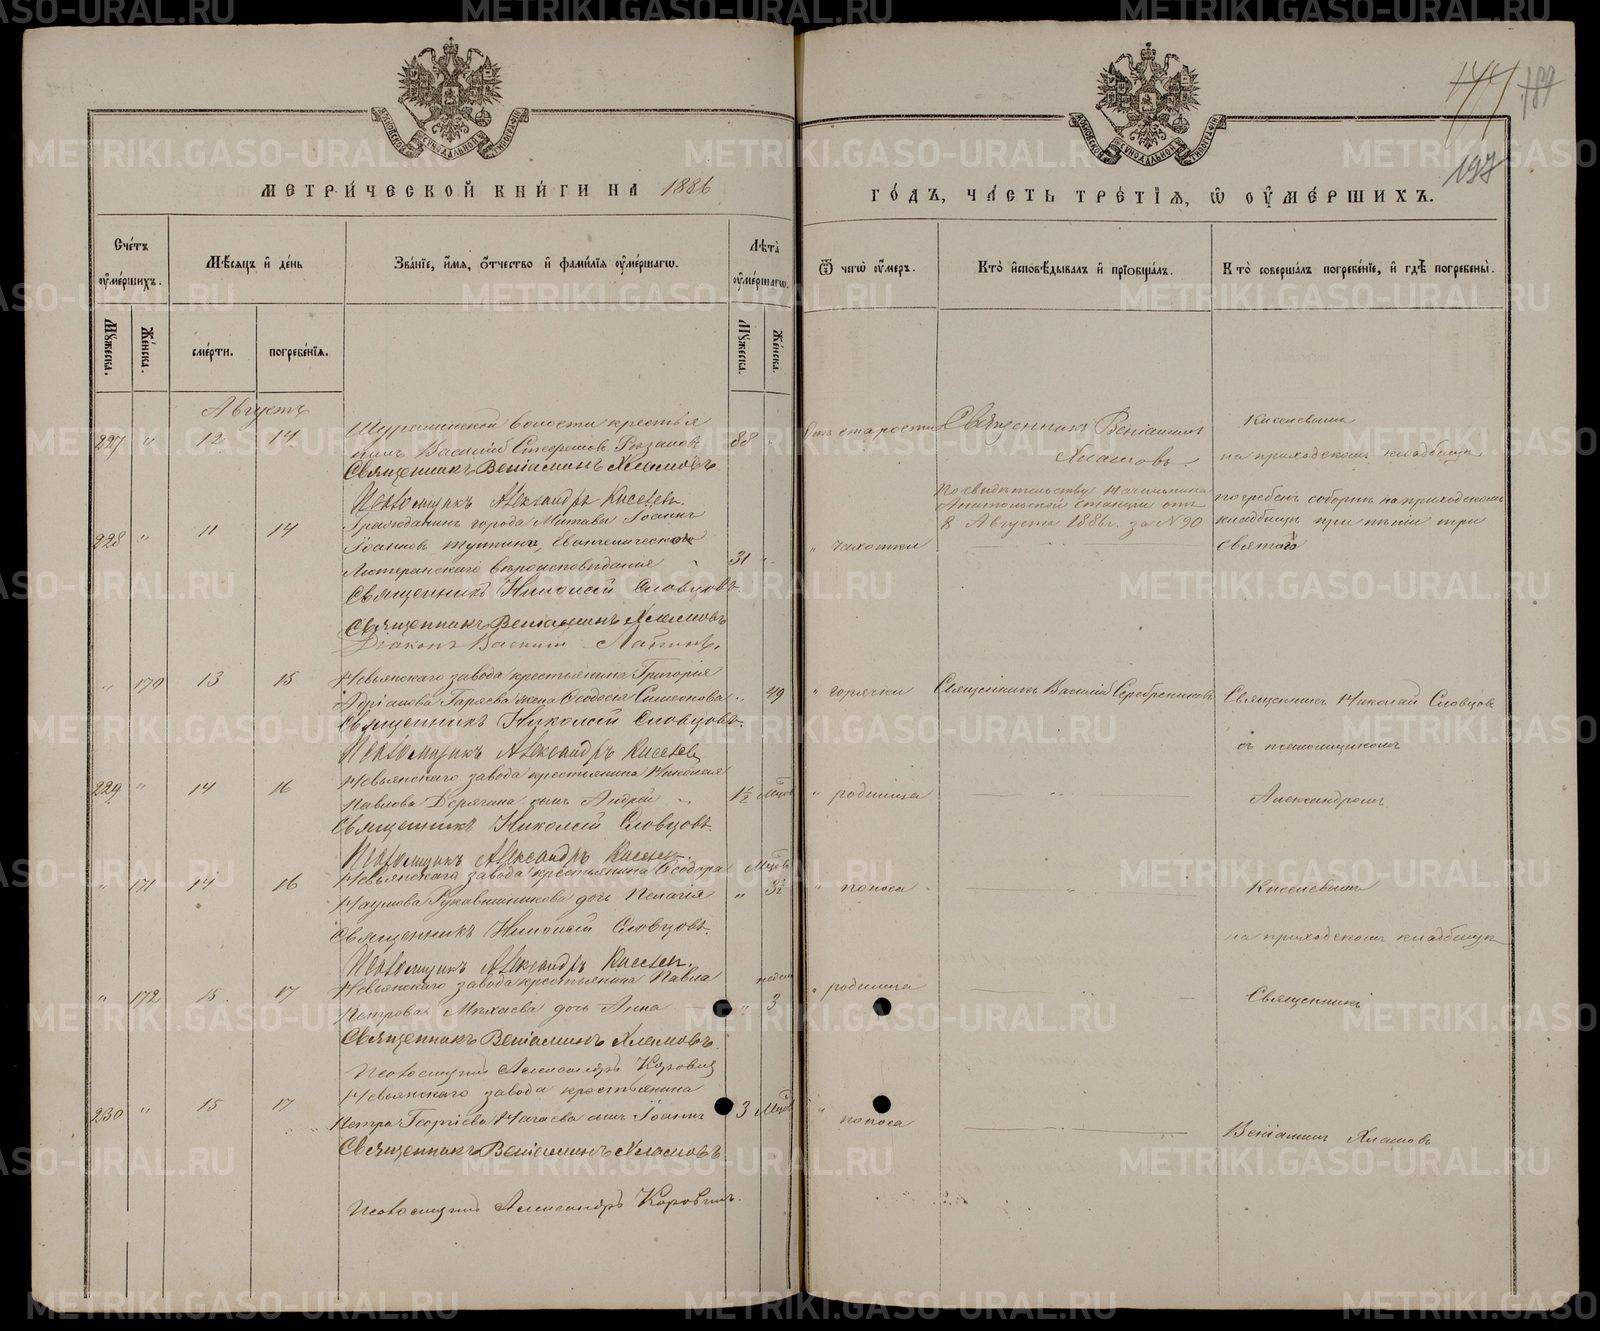 МЕТРИ́ЧЕСКОЙ КНИ́ГИ НА 1886
ГО́ДЪ, ЧА́СТЬ ТРЕ́ТІѦ, Ѡ҆ ОУ҆МЕ́РШИХЪ.
197
Сче́тъ оу҆ме́ршихъ.
Мѣ́сѧцъ и҆ де́нь
Зва́нїе, и҆́мѧ, ѻ҆́тчество и҆ фами́лїѧ оу҆ме́ршагѡ.
Лѣ́та оу҆ме́ршагѡ.
Ѿ чегѡ̀ оу҆́меръ.
Кто̀ и҆сповѣ́дывалъ и҆ прїѡбща́лъ.
Кто̀ соверша́лъ погребе́нїе, и҆ гдѣ̀ погребены̀.
Мꙋ́жеска.
Же́нска.
сме́рти.
погребе́нїѧ.
Мꙋ́жеска.
Же́нска.
Августъ
227 " 12 14
Шуралинской волости крестья
нинъ Василій Стефановъ Рязановъ 88
Священникъ Веніаминъ Хламовъ.
Псаломщикъ Александръ Киселевъ.
отъ старости
Священникъ Веніаминъ
Хламовъ
Киселевымъ
на приходскомъ кладбищѣ
228 " 11 14
Гражданинъ города Митавы Іоаннъ
Іоанновъ
Лютеранскаго вѣроисповѣданія 31
Священникъ Николай Словцовъ.
Священникъ Веніаминъ Хламовъ
Діаконъ Василій
" чахотки
По свидѣтельству Начальника
станціи отъ
8 Августа 1886г. за № 90
погребенъ на приходскомъ
кладбищѣ при пѣніи три
святаго
" 170 13 15
Невьянскаго завода крестьянина Григорія
Адріанова жена Ѳеодосія Симеонова 49
Священникъ Николай Словцовъ.
Псаломщикъ Александръ Киселев
" горячки
Священникъ Василій Серебренниковъ
Священникъ Николай Словцовъ
съ псаломщикомъ
229 " 14 16
Невьянскаго завода крестьянина Николая
Павлова Дерягина сынъ Андрей 1½ Мцов
Священникъ Николай Словцовъ.
Псаломщикъ Александръ Киселев
" родимца
Александромъ
" 171 14 16
Невьянскаго завода крестьянина Ѳеодора Мцов
Наумова Рукавишникова дочь Пелагія " 3½
Священникъ Николай Словцовъ.
Псаломщикъ Александръ Киселев.
" поноса
Киселевымъ
на приходскомъ кладбищѣ
" 172 15 17
Невьянскаго завода крестьянина Павла недел
Петрова дочь Анна " 3
Священникъ Веніаминъ Хламовъ.
Псаломщикъ Александръ Коровинъ
" родимца
Священникъ
230 " 15 17
Невьянскаго завода крестьянина
Петра Георгіева сынъ Іоаннъ 3 Мцов
Священникъ Веніаминъ Хламовъ
Псаломщикъ Александръ Коровинъ.
" поноса
Веніаминъ Хламовъ
METRIKI.GASO-URAL.RU